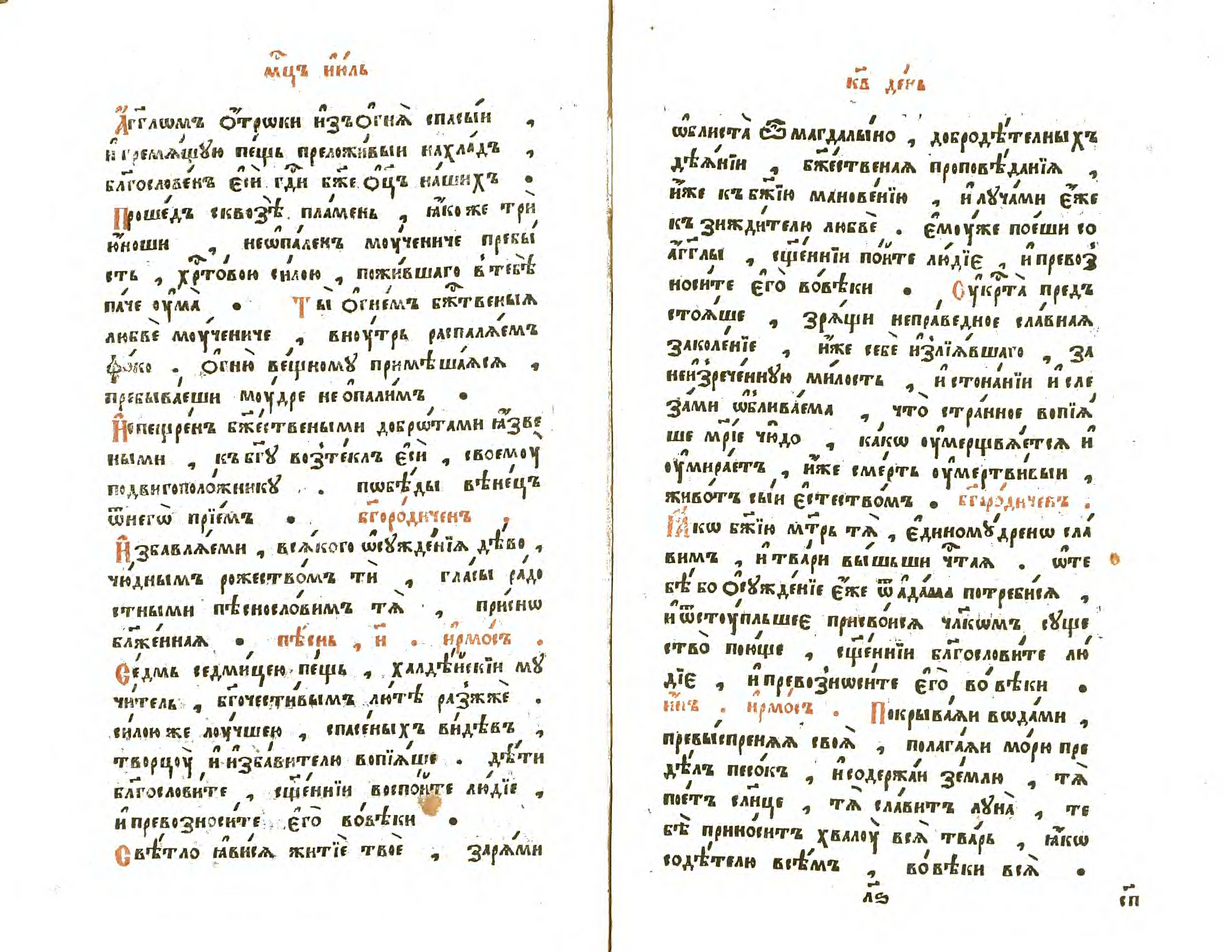 мц҃ъ їю́ль
А҆́гг҃лѡмъ ѻ҆́трѡки и҆зъѻгнѧ̀ спасы́и ,
и҆ гремѧ́щꙋю пе́щь преложи́выи нахла́дъ ,
бл҃гослове́нъ є҆сѝ гд҇и бж҃е ѻ҆ц҃ъ на́шихъ .
Проше́дъ сквозѣ̀ пла́мень , ꙗ҆́коже три
ю҆́ноши , неѡпале́нъ моу́чениче пребы́
сть , хрⷭ҇то́вою си́лою , пожи́вшаго в̾тебѣ̀
па́че оу҆ма̀ . Ты̀ ѻ҆гне́мъ бж҃твеныѧ
любвѐ моу́чениче , вноу́трь распалѧ́емъ
фо́ко . Ѻ҆гню̀ ве́щному примѣша́ѧсѧ ,
пребыва́еши моу́дре не ѻ҆пали́мъ .
И҆спещре́нъ бж҃ествеными добро́тами ꙗ҆́зве
ными , къ бг҃ꙋ возте́клъ є҆сѝ , своемоу̀
подвигополо́жникꙋ . побѣ́ды вѣне́цъ
ѿнегѡ̀ прїе́мъ . бг҃оро́диченъ .
И҆збавлѧ́еми , всѧ́кого ѡ҆сꙋжде́нїѧ дѣ́во ,
чю́днымъ рожество́мъ тѝ , гла́сы ра́до
стными пѣснослови́мъ тѧ̀ , при́снѡ
бл҃же́ннаѧ . пѣ́снь , и҃ . і҆рмо́съ .
Се́дмь седми́цею пе́щь , халдѣ́йскїи мꙋ
чи́тель , бг҃очести́вымъ лю́тѣ разжжѐ .
си́лою же лоу́чшею , спасе́ныхъ ви́дѣвъ ,
творцоу̀ и҆ и҆зба́вителю вопїѧ́ше . дѣ́ти
бл҃гослови́те , сщ҃е́ннїи воспо́ите лю́дїе ,
и҆ превозноси́те є҆го̀ во́вѣки .
Свѣ́тло ꙗ҆ви́сѧ житїѐ твоѐ , зарѧ́ми
к҃в де́нь
ѡ҆блиста̀ ѿ магдалы́но , добродѣ́телныхъ
дѣѧ́нїи , бж҃ественаѧ проповѣ́данїѧ ,
и҆́же къ бж҃їю манове́нїю , и҆ лꙋча́ми є҆́же
къ зижди́телю любвѐ . є҆моу́же пое́ши со
а҆́гг҃лы , сщ҃е́ннїи по́ите лю́дїє , и҆ превоз
носи́те є҆го̀ во́вѣки . Оу҆ крⷭ҇та̀ предъ
стоѧ́ше , зрѧ́щи непра́ведное сла́внаѧ
заколе́нїе , и҆́же себѐ и҆злїѧ́вшаго , за
неи҆зрече́ннꙋю ми́лость , и҆ стона́нїи и҆ сле
за́ми ѡ҆блива́ема , что̀ стра́нное вопїѧ́
ше мр҃їе чю́до , ка́кѡ оу҆мерщвлѧ́етсѧ и҆
оу҆мира́етъ , и҆́же сме́рть оу҆мертви́выи ,
живо́тъ сы́и є҆стество́мъ . бг҃оро́диченъ .
Ꙗ҆́кѡ бж҃їю мт҃рь тѧ̀ , є҆диномꙋ́дренѡ сла́
вимъ , и҆ тва́ри вы́шьши чⷭ҇таѧ . ѡ҆те
бѣ́ бо ѻ҆сꙋжде́нїе є҆́же ѿ а҆да́ма потреби́сѧ ,
и҆ ѿстоу́пльшеє присво́исѧ чл҃кѡмъ сꙋще
ство̀ пою́ще , сщ҃е́ннїи бл҃гослови́те лю́
дїє , и҆ превозноси́те є҆го̀ во́вѣки .
и҆́нъ . і҆рмо́съ . Покрыва́ѧи вода́ми ,
превы́спренѧѧ своѧ̀ , полага́ѧи мо́рю пре
дѣ́лъ песо́къ , и҆ содержа́и зе́млю , тѧ̀
пое́тъ сл҃нце , тѧ̀ сла́витъ лꙋна̀ , те
бѣ̀ прино́ситъ хвалоу̀ всѧ̀ тва́рь , ꙗ҆́кѡ
содѣ́телю всѣ́мъ , во́вѣки всѧ̀ .
л҃ѕ сп҃